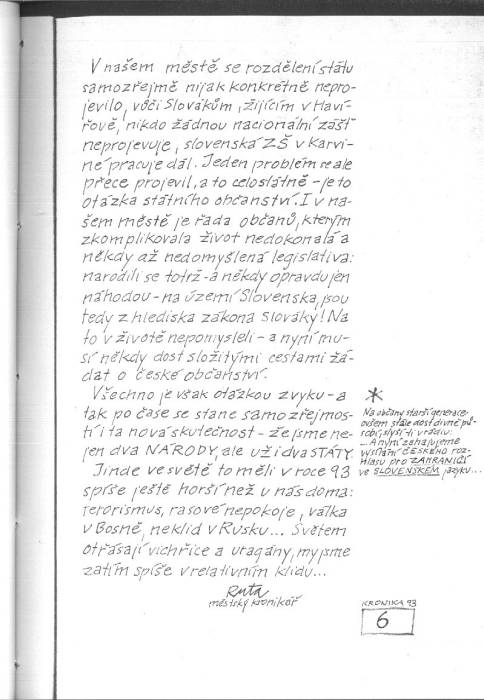 V našem městě se rozdělení státu
samozřejmě nijak konkrétně nepro-
jevilo, vůči Slovákům, žijícím v Haví-
řově, nikdo žádnou nacionální zášť
neprojevuje, slovenská ZŠ v Karvi-
né pracuje dál. Jeden problém se ale
přece projevil, a to celostátně – je to
otázka státního občanství. I v na-
šem městě je řada občanů, kterým
zkomplikovala život nedokonalá a
někdy až nedomyšlená legislativa:
narodili se totiž – a někdy opravdu jen
náhodou – na území Slovenska, jsou
tedy z hlediska zákona Slováky! Na
to v životě nepomysleli – a nyní mu-
sí někdy dost složitými cestami žá-
dat o české občanství.
Všechno je však otázkou zvyku – a
tak po čase se stane samozřejmos-
tí i ta nová skutečnost – že jsme ne-
jen dva NÁRODY, ale už i dva STÁTY.
Jinde ve světě to měli v roce 93
spíše ještě horší než u nás doma:
terorismus, rasové nepokoje, válka
v Bosně, neklid v Rusku... Světem
otřásají vichřice a uragány, my jsme
zatím spíše v relativním klidu...
Ruta
městský kronikář
*
Na občany starší generace
ovšem stále dost divně pů-
sobí, slyší-li v rádiu:
... A nyní zahajujeme
vysílání ČESKÉHO roz-
hlasu pro ZAHRANIČÍ
ve SLOVENSKÉM jazyku...
KRONIKA 93
6